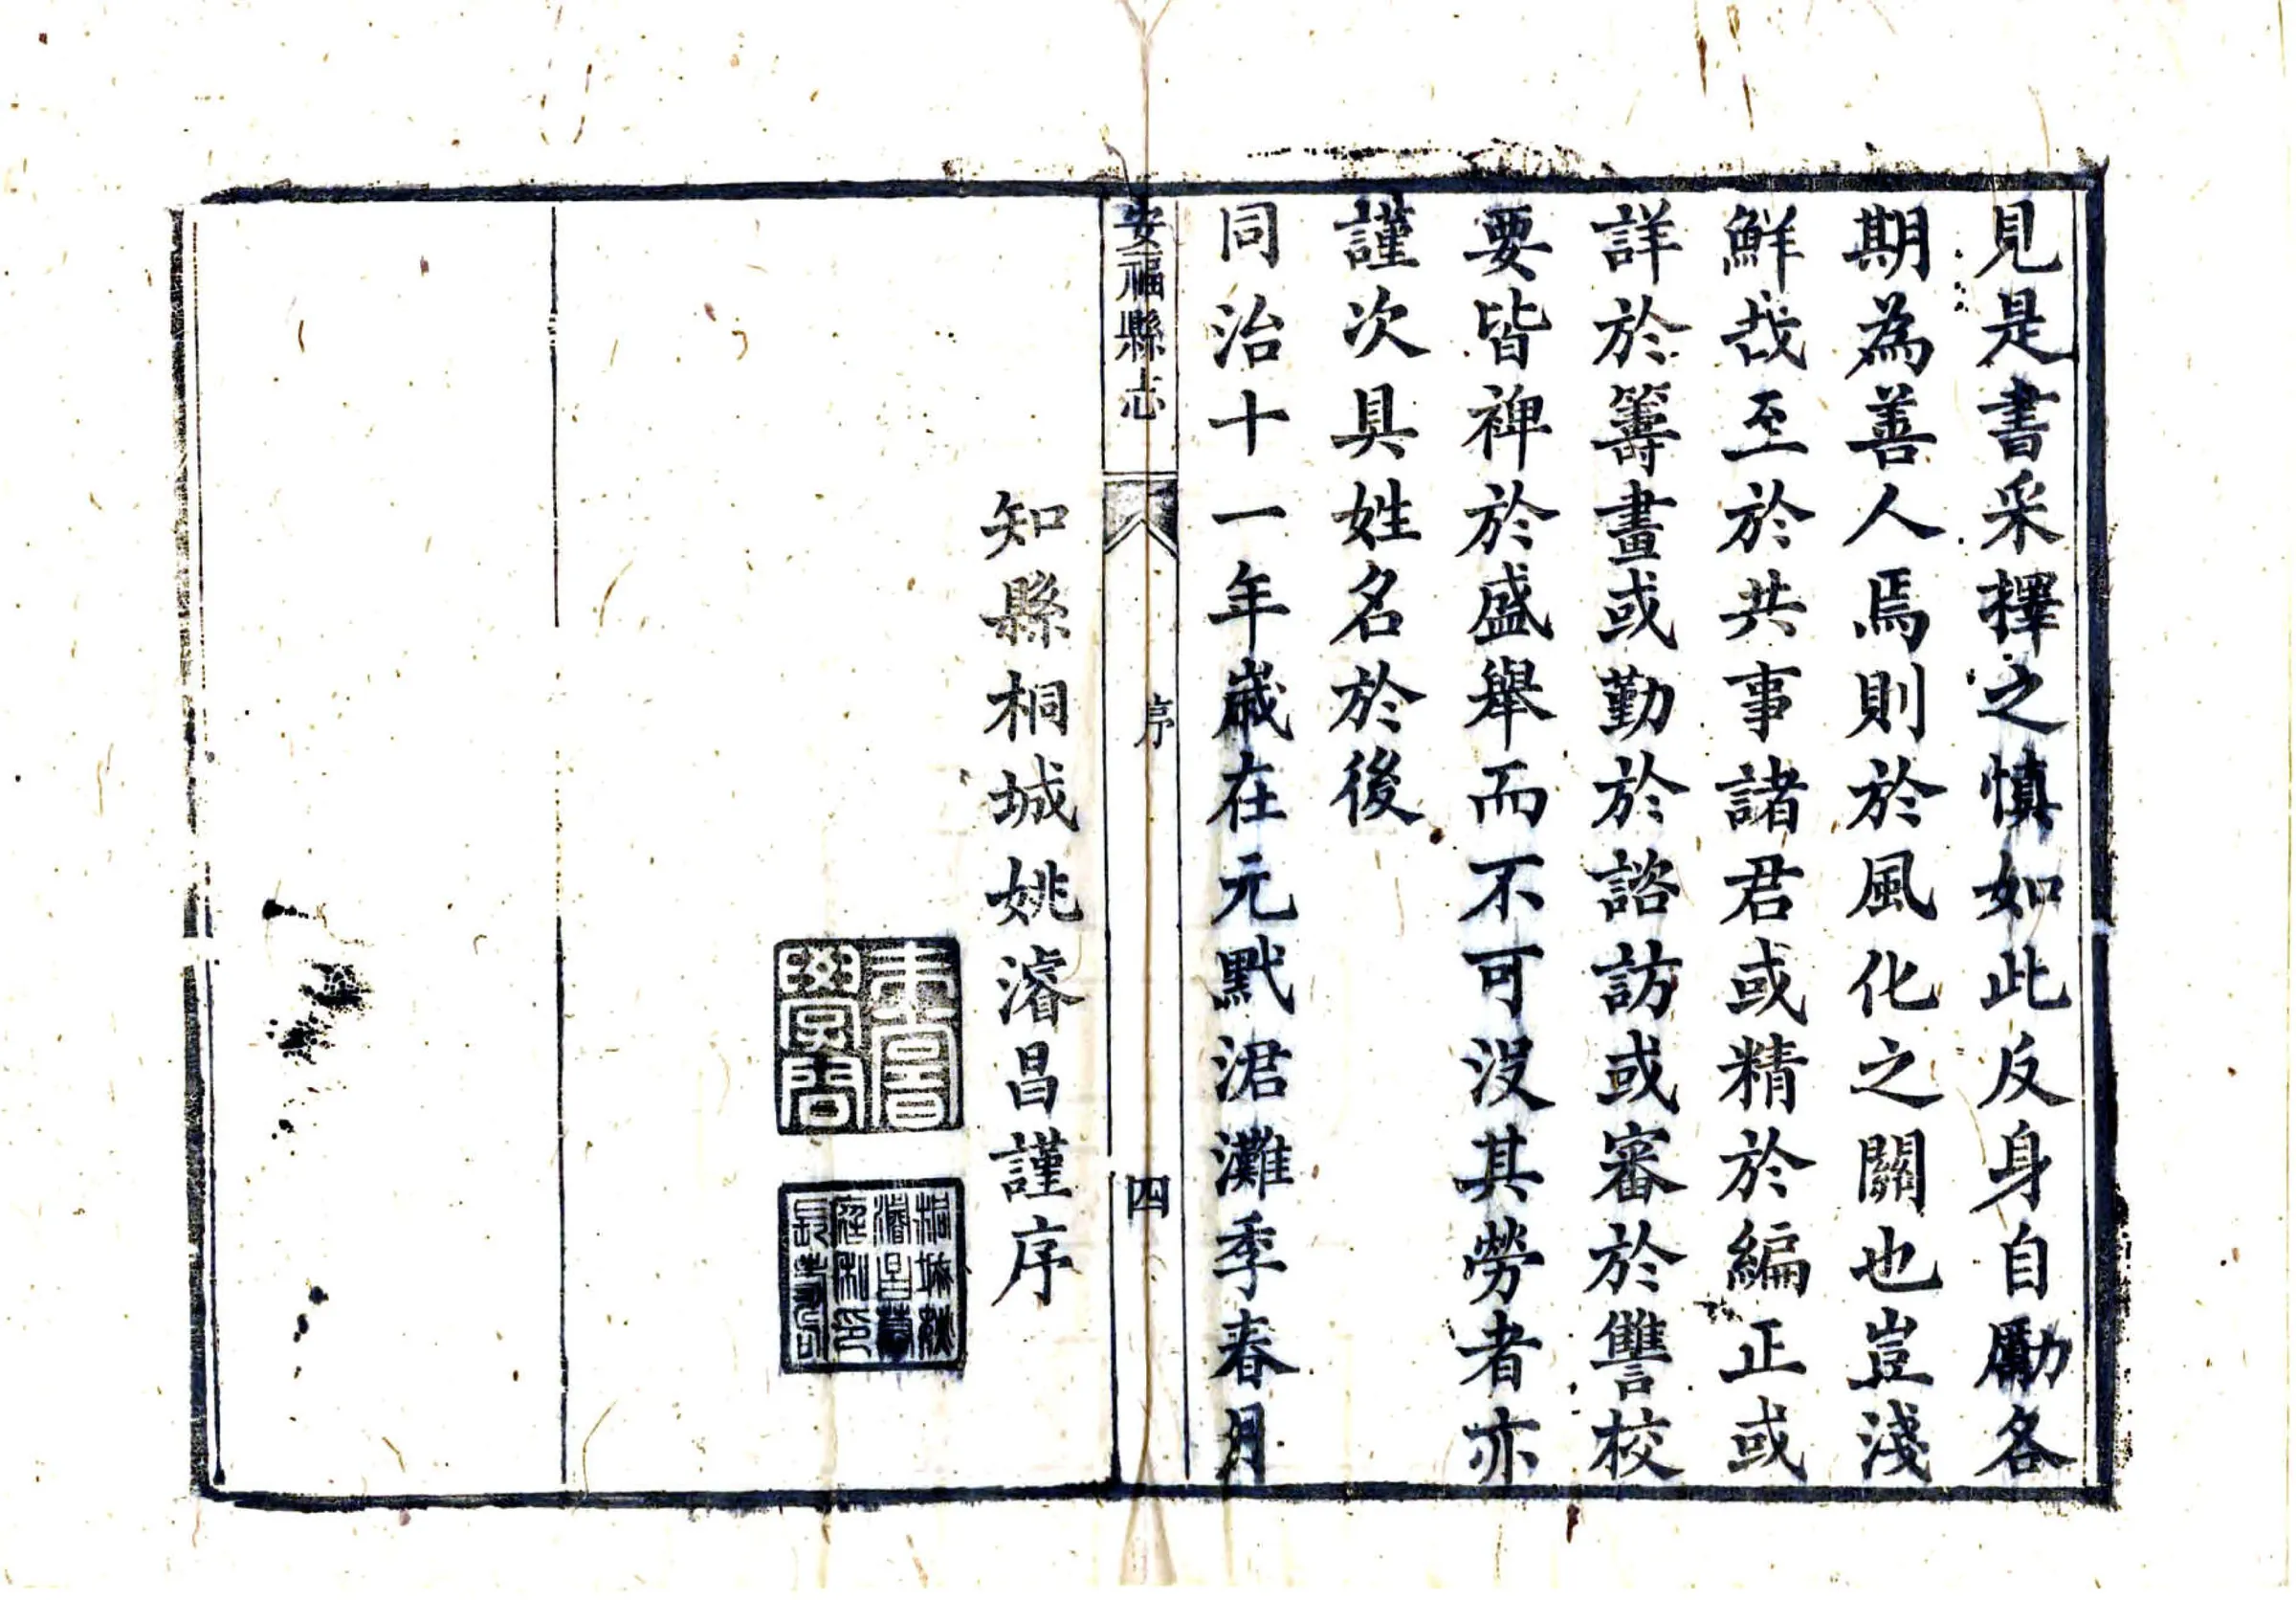 見是書采擇之慎如此反身自勵各
期為善人焉則於風化之關也豈淺
鮮哉至於共事諸君或精於編正或
詳於籌畫或勤於諮訪或審於讐校
要皆裨於盛舉而不可没其勞者亦
謹次具姓名於後
同治十一年歲在元黓涒灘季春月
安福縣志
序
四
知縣桐城姚濬昌謹序
桐城姚
濬昌